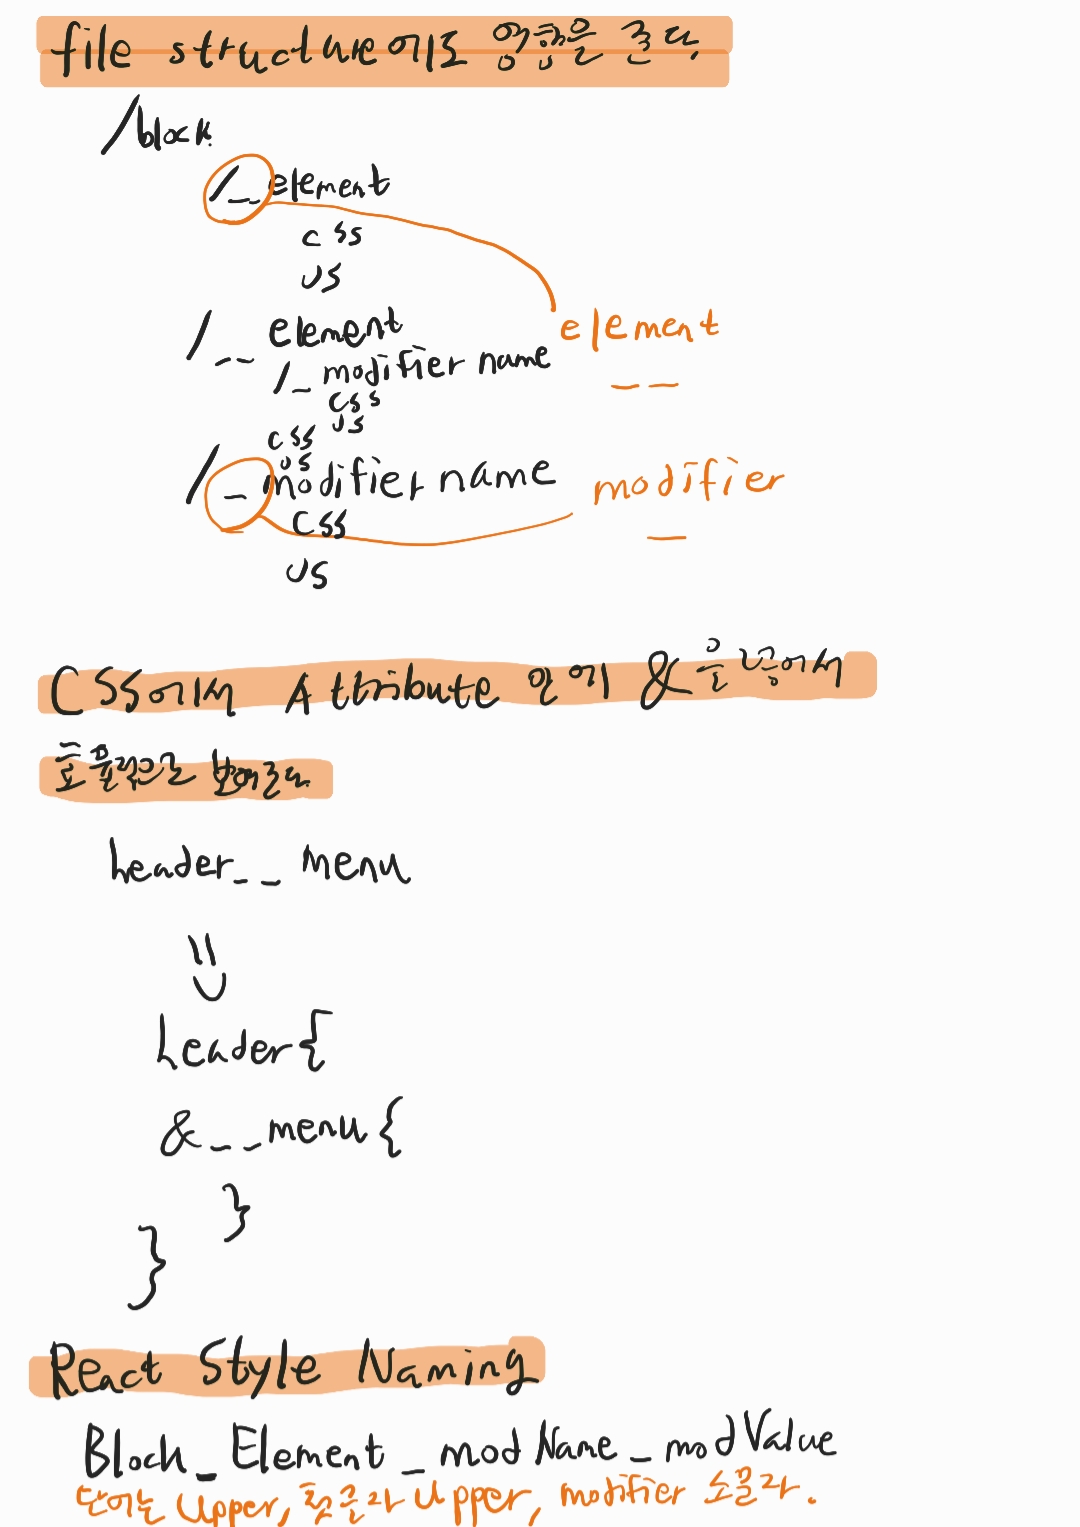 file structure에도 영향을 준다.
/block
/__element
css
JS
/__ element
element
/_ modifier name
css
JS
css
JS
/_modifier name
modifier
css
JS
CSS에서 Attribute 안에 & 를 넣어서
효율적으로 보여준다.
header__menu
=
header{
&__menu{
}
}
React Style Naming
Block_Element_modName_modValue
단어는 Upper, 첫글자 Upper, modifier 소문자.